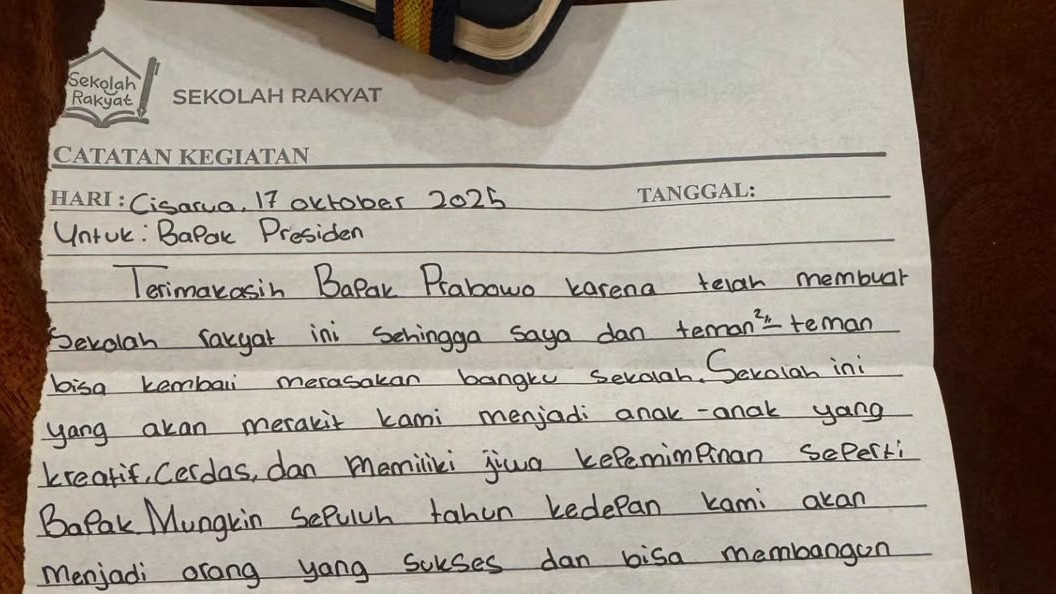 Sekolah
Rakyat
SEKOLAH RAKYAT
CATATAN KEGIATAN
HARI : Cisarua, 17 oktober 2025 TANGGAL:
Untuk : Bapak Presiden
Terimakasih Bapak Prabowo karena telah membuat
Sekolah rakyat ini sehingga saya dan teman²ⁿ- teman
bisa kembali merasakan bangku sekolah. Sekolah ini
yang akan merakit kami menjadi anak -anak yang
kreatif, Cerdas, dan memiliki jiwa kepemimpinan seperti
Bapak. Mungkin sepuluh tahun kedepan kami akan
menjadi orang yang sukses dan bisa membangun